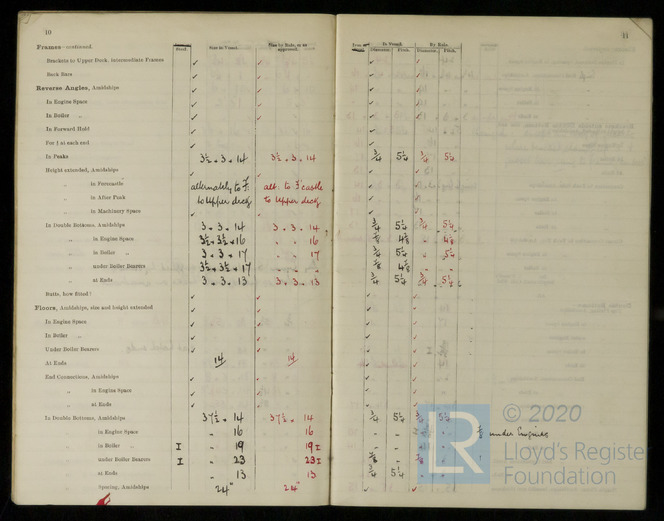 10
Frames—continued.
Steel Size in Vessel. Size by Rule, or as approved.
Brackets to Upper Deck, intermediate Frames ✓ ✓
Back Bars ✓ ✓
Reverse Angles, Amidships ✓ ✓
In Engine Space ✓ ✓
In Boiler „ ✓ ✓
In Forward Hold ✓ ✓
For ⅕ at each end ✓ ✓
In Peaks 3½ . 3 . 14 3½ . 3 . 14
Height extended, Amidships ✓ ✓
„ in Forecastle alternately to F. alt. to F'castle
„ in After Peak to Upper deck to Upper deck
„ in Machinery Space ✓ ✓
In Double Bottoms, Amidships 3 . 3 . 14 3 . 3 . 14
„ in Engine Space 3½ . 3½ . 16 „ „ 16
„ in Boiler „ 3 . 3 . 17 „ „ 17
„ under Boiler Bearers 3½ . 3½ . 17
„ at Ends 3 . 3 . 13 3 . 3 . 13
Butts, how fitted? ✓ ✓
Floors, Amidships, size and height extended ✓ ✓
In Engine Space ✓ ✓
In Boiler „ ✓ ✓
Under Boiler Bearers ✓ ✓
At Ends 14 14
End Connections, Amidships ✓ ✓
„ in Engine Space ✓ ✓
„ at Ends ✓ ✓
In Double Bottoms, Amidships 37½ . 14 37½ . 14
„ in Engine Space „ 16 16
„ in Boiler „ I „ 19 19 I
„ under Boiler Bearers I „ 23 23 I
„ at Ends „ 13 13
Spacing, Amidships 24" 24"
11
In Vessel. By Rule.
Diameter. Pitch. Diameter. Pitch.
¾ 5¼ ¾ 5¼
¾ 5¼ ¾ 5¼
⅞ 4⅜ „ 4⅜
¾ 5¼ „ 5¼
⅞ 4⅜ „ „
¾ 5¼ ¾ 5¼
¾ 5¼ ¾ 5¼
under Engines
¾ 5¼
© 2020
LR
Lloyd's Register
Foundation